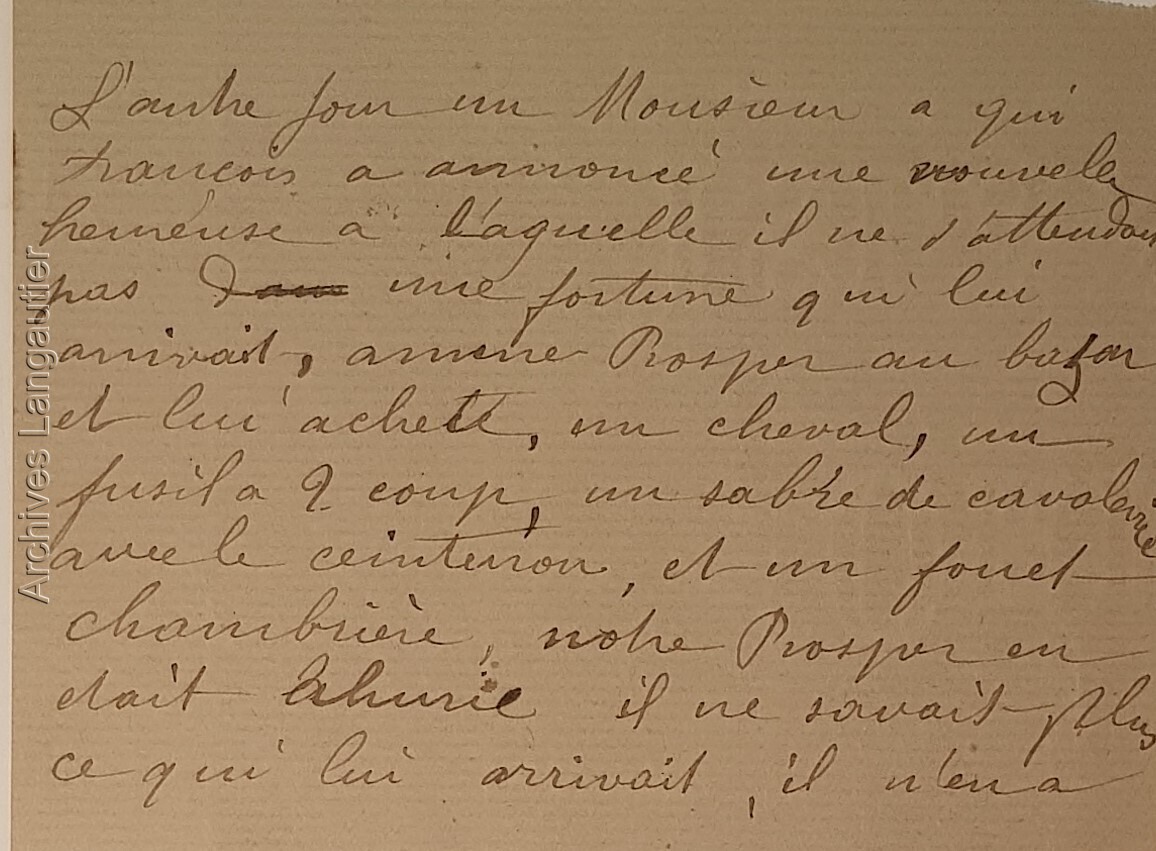 L'autre jour un Monsieur a qui
François a annoncé une nouvele
hereuse a l'aquelle il ne s'attendait
pas une fortune qui lui
arrivait, amene Prosper au bazar
et lui achete, un cheval, un
fusil a 2 coup, un sabre de cavalerie
avec le ceinturon, et un fouet
chambrière, notre Prosper en
etait ahurie il ne savait plus
ce qui lui arrivait, il n'en a
Archives Langautier